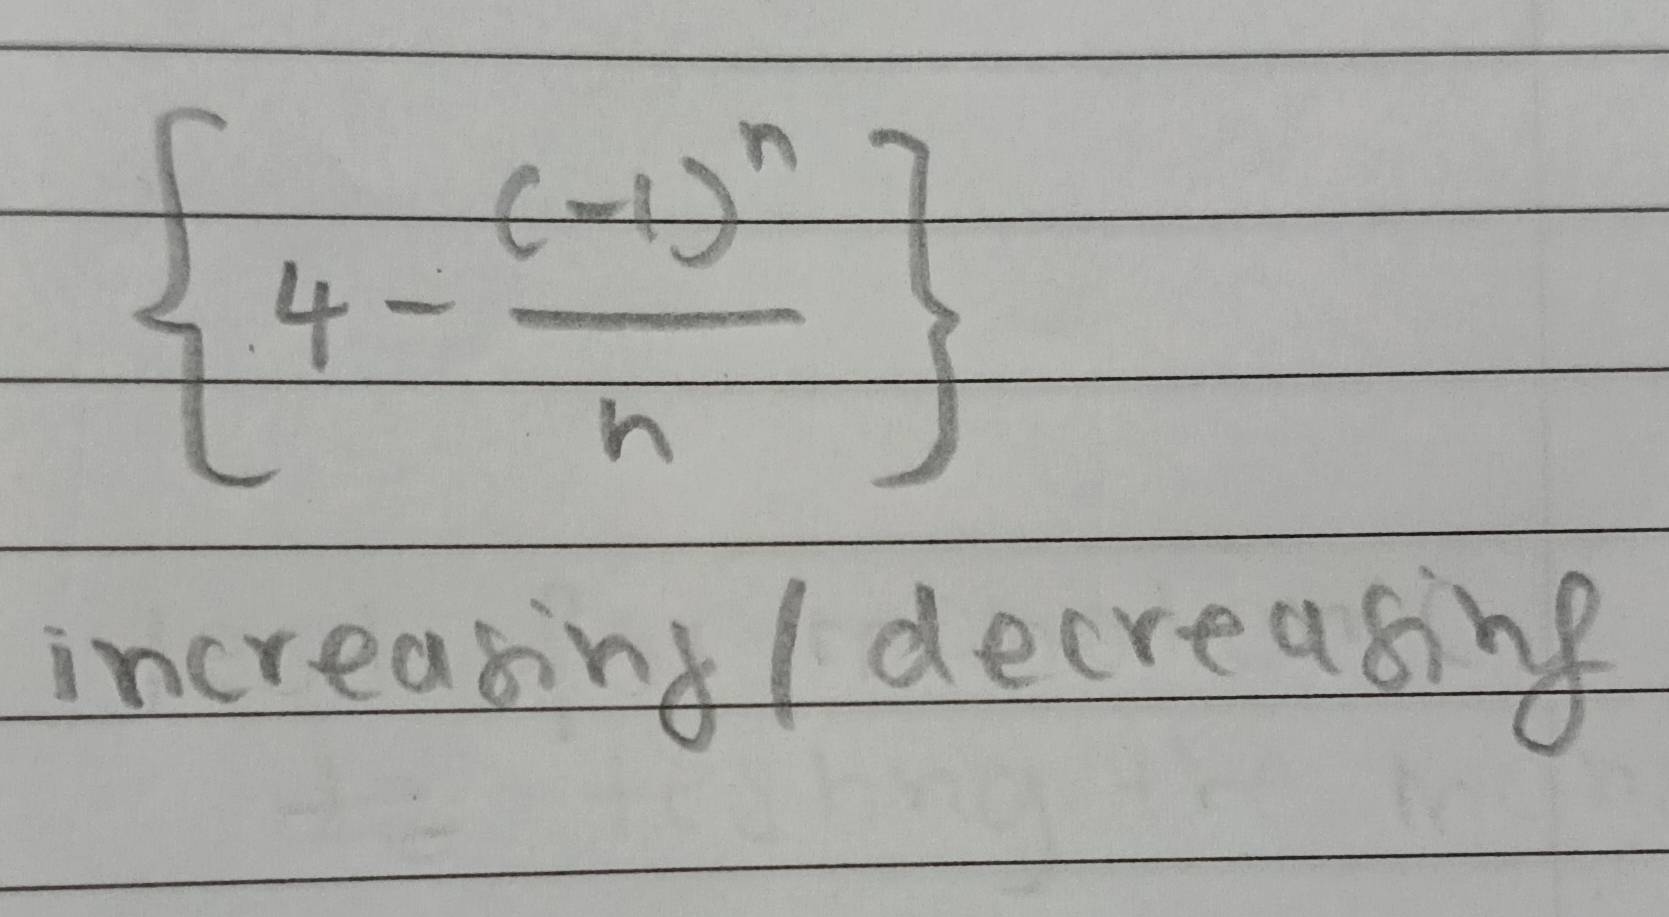 { 4 - (-1)^n / n }
increasing / decreasing